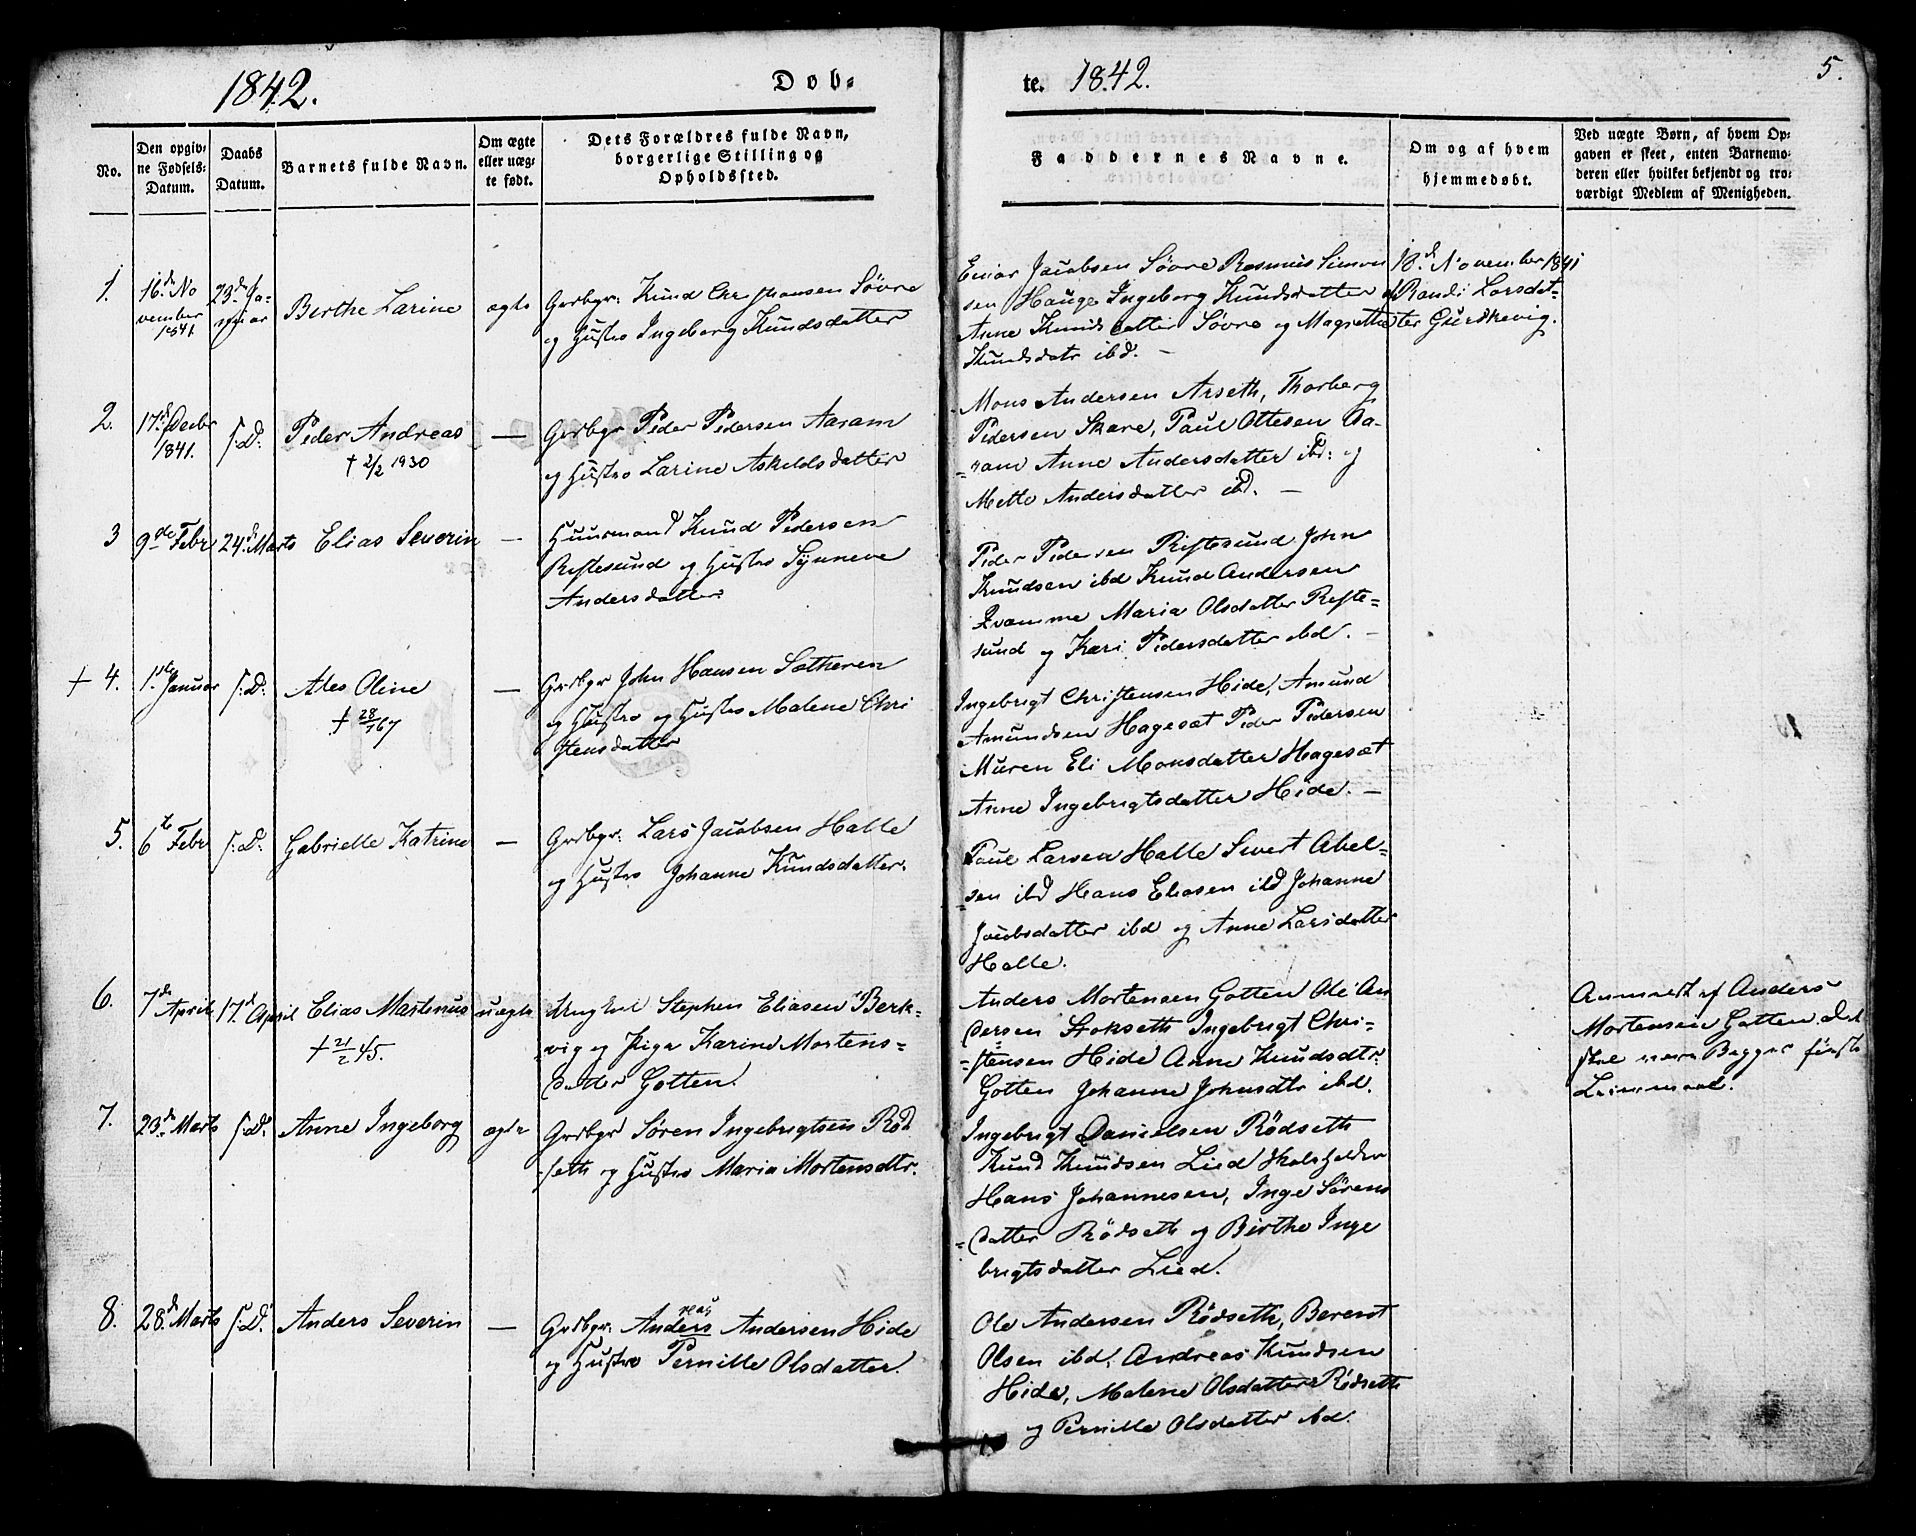 1842. Døb-
te. 1842. 5.
No.
Den opgiv-
ne Fødsels-
Datum.
Daabs
Datum.
Barnets fulde Navn.
Om ægte
eller uæg-
te født.
Dets Forældres fulde Navn,
borgerlige Stilling og
Opholdssted.
Faddernes Navne.
Om og af hvem
hjemmedøbt.
Ved uægte Børn, af hvem Op-
gaven er skeet, enten Barnemo-
deren eller hvilket bekjendt og tro-
værdigt Medlem af Menigheden.
1.
16de No
vember
1841.
23de Ja-
nuar
Berthe Larine
ægte
Grdbgr: Knud Christiansen Søvre
og Hustro Ingeborg Knudsdatter
Einar Jacobsen Søvre Rasmus Simon
sen Hauge Ingeborg Knudsdatter
Anne Knudsdatter Søvre og Magrethe
Knudsdatr ibd. —
18de November 1841
af Randi Larsdat-
ter Gurskevig.
2.
17de Decbr
1841.
s: D:
Peder Andreas
† 2/2 1930
—
Grdbgr Peder Pedersen Aaram
og Hustro Larine Askeldsdatter
Mons Andersen Arseth, Thorberg
Pedersen Skare, Paul Ottesen Aa-
ram Anne Andersdatter ibd: og
Mette Andersdatter ibd. —
3
9de Febr
24de Marts
Elias Severin
—
Huusmand Knud Pedersen
Riftesund og Hustro Synneve
Andersdatter
Peder Pedersen Riftesund John
Knudsen ibd Knud Andersen
Qvamme Maria Olsdatter Rifte-
sund og Kari Pedersdatter ibd. —
† 4.
1ste Januar
s: D:
Ales Oline
† 28/1 67
—
Grdbgr John Hansen Sætheren
og Hustro og Hustro Malene Chri
stensdatter
Ingebrigt Christensen Hide, Amund
Amundsen Hagesæt Peder Pedersen
Muren Eli Monsdatter Hagesæt
Anne Ingebrigtsdatter Hide. —
5.
6te Febr
s: D:
Gabrielle Katrine
—
Grdbgr: Lars Jacobsen Halle
og Hustro Johanne Knudsdatter.
Paul Larsen Halle Sivert Abel-
sen ibd Hans Eliasen ibd Johanne
Jacobsdatter ibd og Anne Larsdatter
Halle.
6.
7de April
17de April
Elias Martinus
† 21/2 45.
uægte
Ungkarl Stephen Eliasen Berk-
vig og Pige Karine Mortens-
datter Gotten.
Anders Mortensen Gotten Ole An
dersen Stokseth Ingebrigt Chri-
stensen Hide Anne Knudsdtr
Gotten Johanne Johnsdtr ibd.
Anmeldt af Anders
Mortensen Gotten. Det
skal være Begges første
Leiermaal.
7.
23de Marts
s: D:
Anne Ingeborg
ægte
Grdbgr Søren Ingebrigtsen Rød
seth og Hustro Maria Mortensdtr.
Ingebrigt Danielsen Rödseth
Knud Knudsen Lied Skoleholder
Hans Johannesen, Inge Sörens
datter Rödseth og Birthe Inge
brigtsdatter Lied.
8.
28de Marts
s: D:
Anders Severin
—
Grdbgr: Anders Andersen Hide
og Hustro Pernille Olsdatter.
Ole Andersen Rödseth, Berent
Olsen ibd, Andreas Knudsen
Hide, Malene Olsdatter Rödseth
og Pernille Olsdatter ibd.